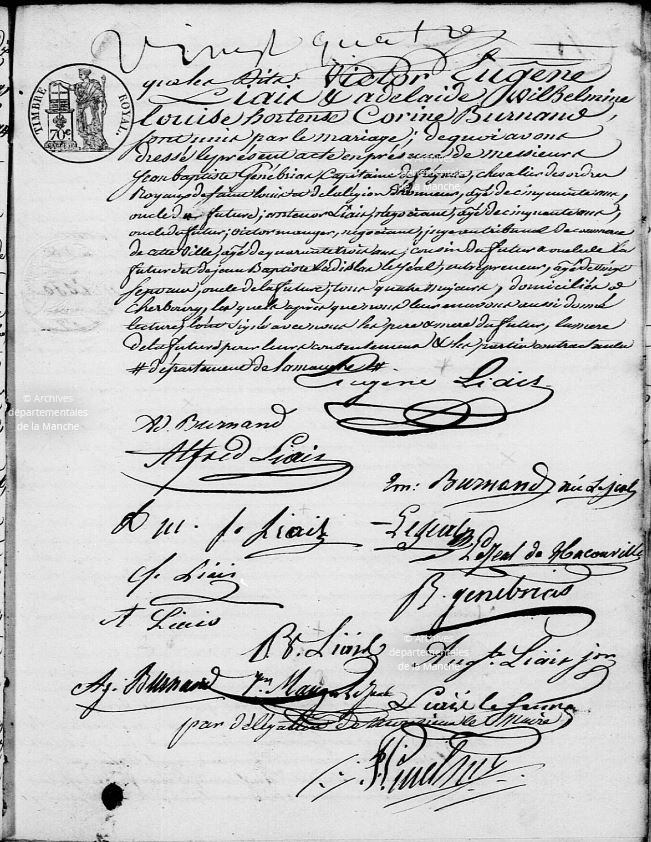 Vingt quatre
TIMBRE ROYAL
70c
que les dits Victor Eugène
Liais & adelaide Wilhelmine
Louise hortense Corine Burnand,
sont unis par le mariage; de quoi avons
dressé le présent acte en présence de messieurs
Jean baptiste Génébrias, Capitaine de frégate, chevalier des ordres
Royaux de saint louis & de la légion d'honneur, agé de cinquante ans,
oncle de la future; antenor Liais, négociant, agé de cinquante ans,
oncle du futur; victor mauger, négociant, juge au tribunal de commerce
de cette ville, agé de quarante trois ans, cousin du futur & oncle de la
future et de jean Baptiste Ladislas le Jeal, entrepreneur, agé de vingt
sept ans, oncle de la future; tous quatre majeurs, domiciliés à
Cherbourg, lesquels après que nous leur en avons aussi donné
lecture, ont signé avec nous les père & mère du futur, la mère
de la future pour leurs consentemens & les parties contractantes
# département de la manche #.
Eugène Liais
© Archives
départementales
de la Manche
W. Burnand
Alfred Liais
Burnand née le Jeal
m. f. Liais
LeJeal de Hacouville
f. Liais
B. genebrias
A Liais
B. Liais
© Archives
départementales
de la Manche
Aug.te Liais jnr
Ag. Burnand
Liais le jeune
par délégation de monsieur le Maire